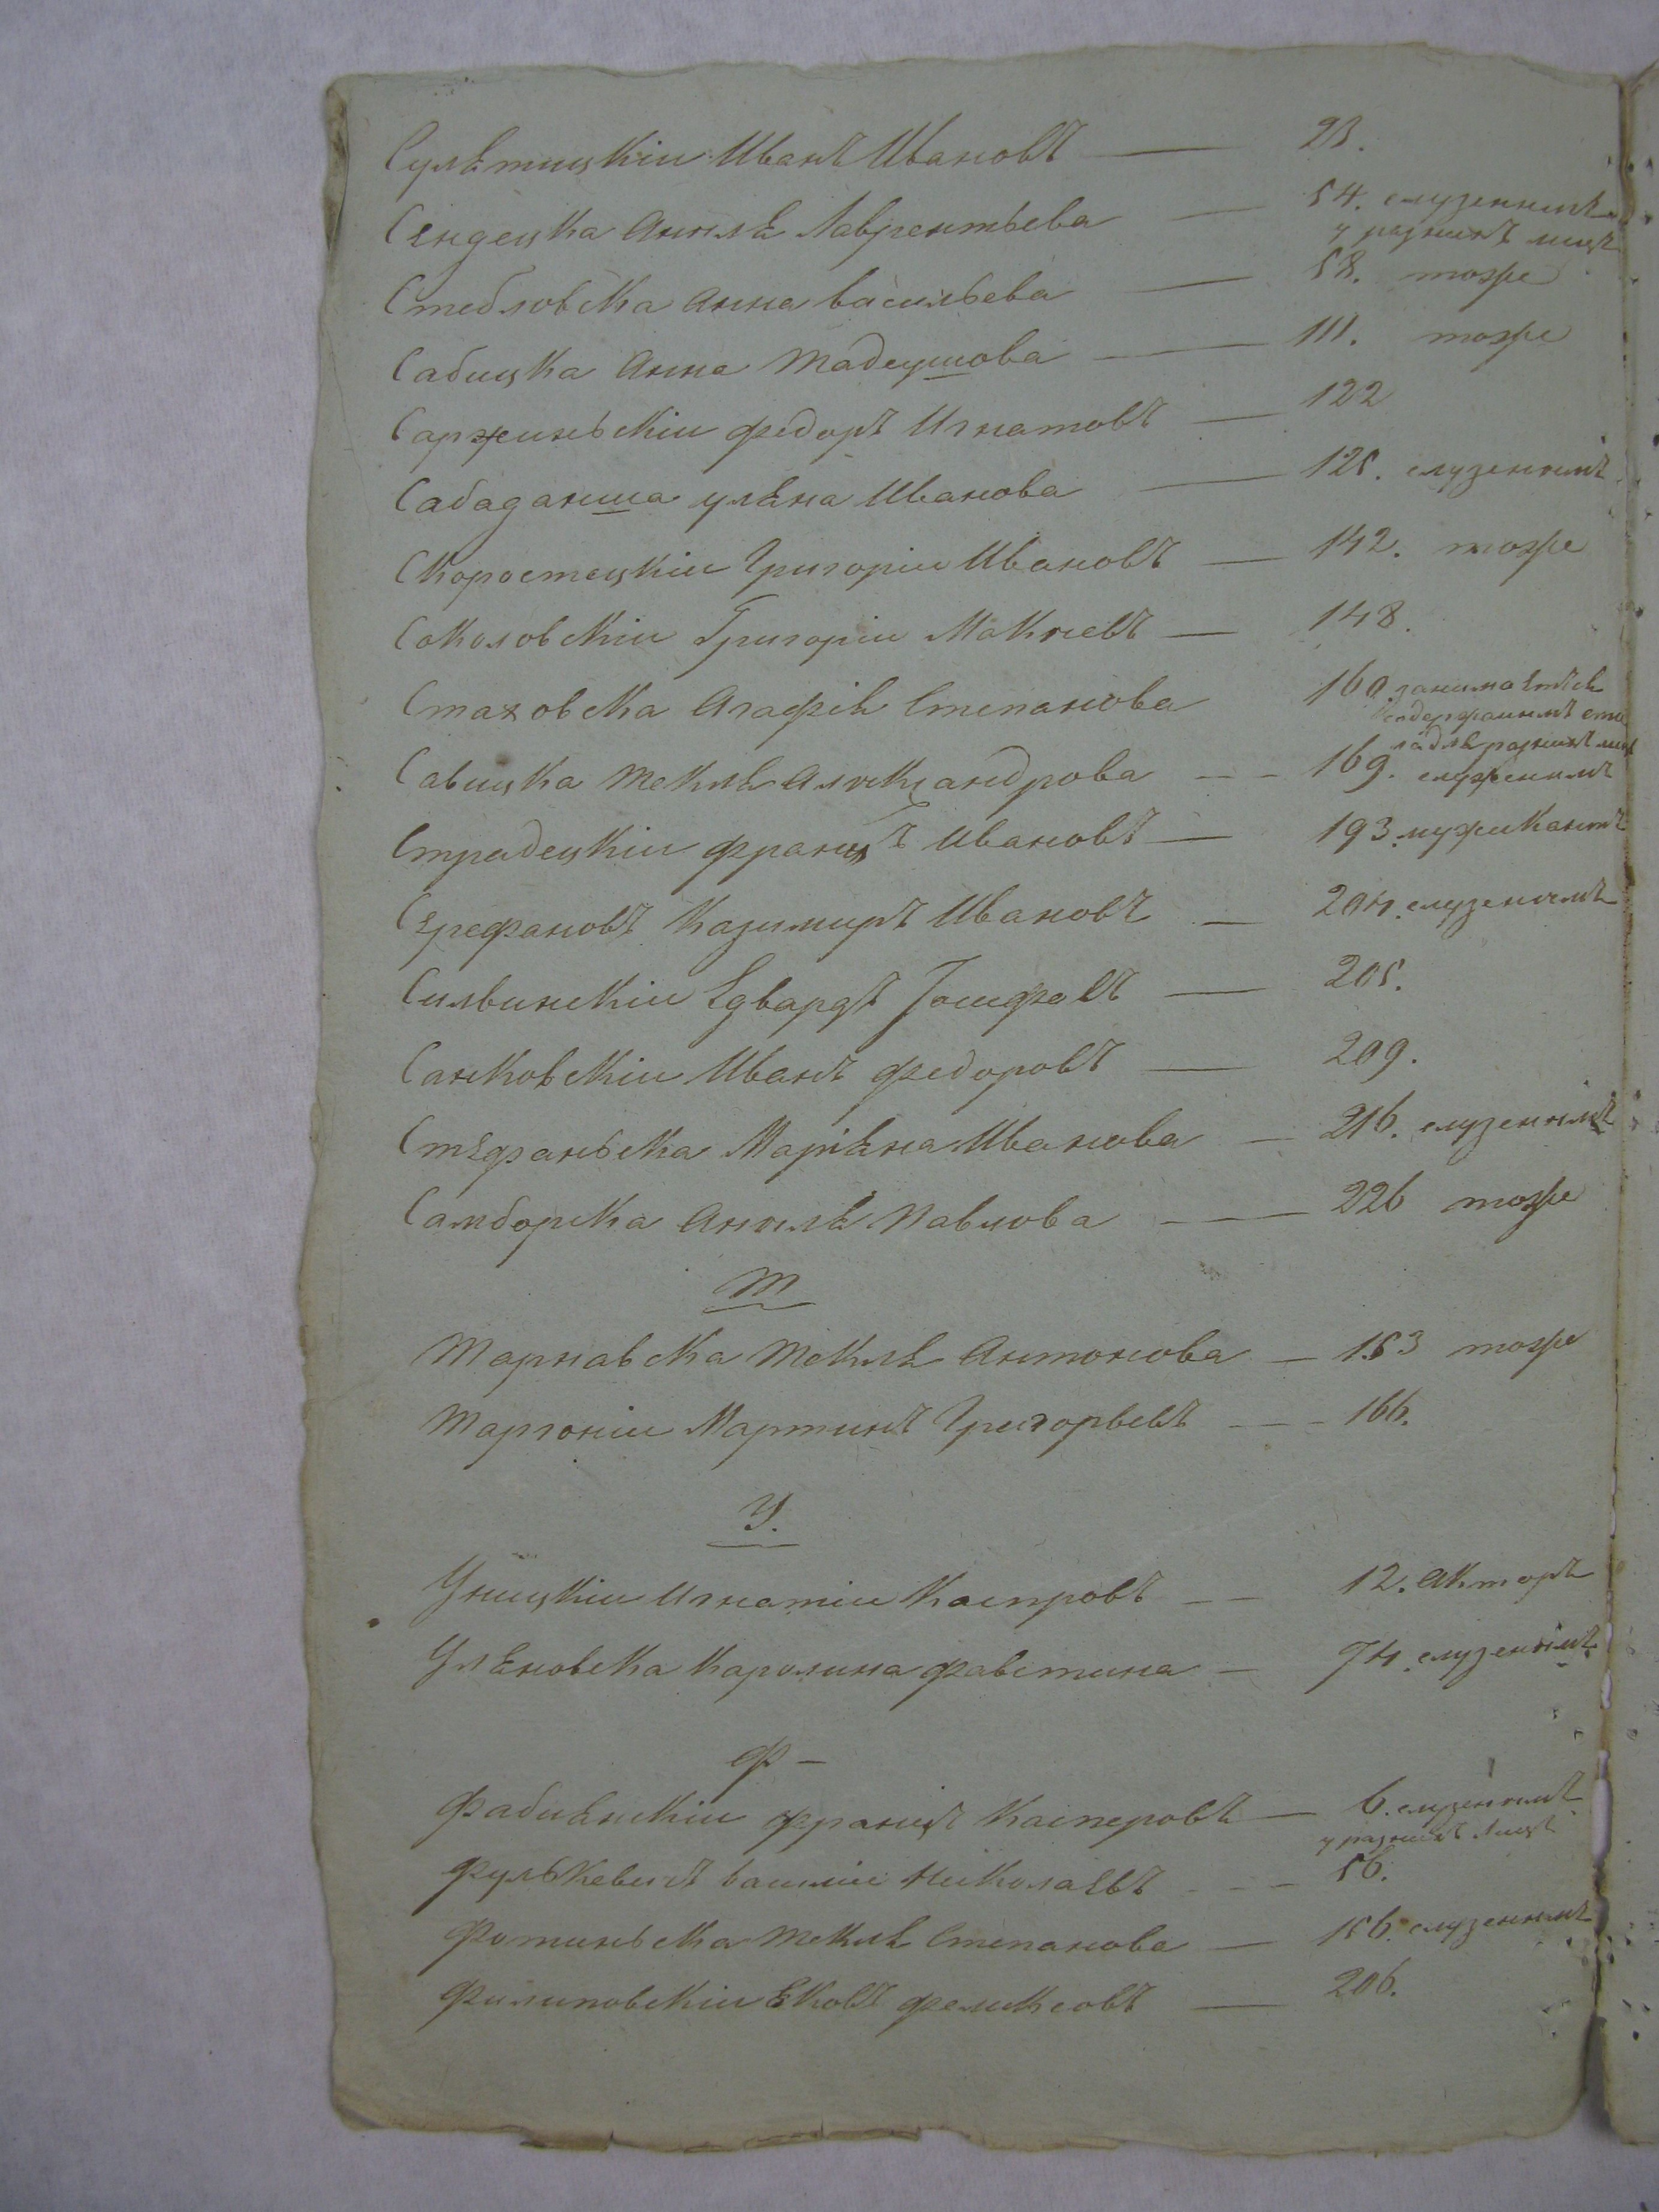 Сулѣтицкіи Иванъ Ивановъ — 23.
Сендецка Анилѣ Лаврентьева — 54. слуzеніемъ
у разнихъ лицъ
Стебловска Анна Васильева — 58. тоже
Сабицка Анна Тадеушова — 111. тоже
Саржиньскіи Федоръ Игнатовъ — 122
Сабаданша Улѣна Иванова — 125. слуzеніемъ
Скоростецкіи Григоріи Ивановъ — 142. тоже
Соколовскіи Григоріи — 148.
Стаховска Агафіѣ Степанова 160 занимаетъсѣ
содержаніемъ сто
ла длѣ разнихъ лицъ
Савицка Теклѣ Александрова — — 169. служеніемъ
Страдецкіи Францъ Ивановъ — 193. мужикантъ
Казимиръ Ивановъ — 204. слуzеніемъ
Сильвинскіи Едвардъ Іосифовъ — 205.
Санковскіи Иванъ Федоровъ — 209.
Стефаньска Маріѣна Иванова — 216. слуzеніемъ
Самборска Анилѣ Павлова — 226 тоже
Т
Тарнавска Теклѣ Антонова — 153 тоже
Таргоніи Мартинъ Григорьевъ — — 166.
У.
Уницкіи Игнатіи Каспровъ — — 12. Акторъ
Улѣновска Каролина Фавстина — 74. слуzеніемъ
Ф —
Фабиѣнскіи Францъ Касперовъ — 6. слуzеніемъ
у разнихъ лицъ
Фулькевичъ Василіи Николаевъ — — — 56.
Фотиньска Теклѣ Степанова — 156. слуzеніемъ
Филиповскіи Ѣковъ Феликсовъ — 206.